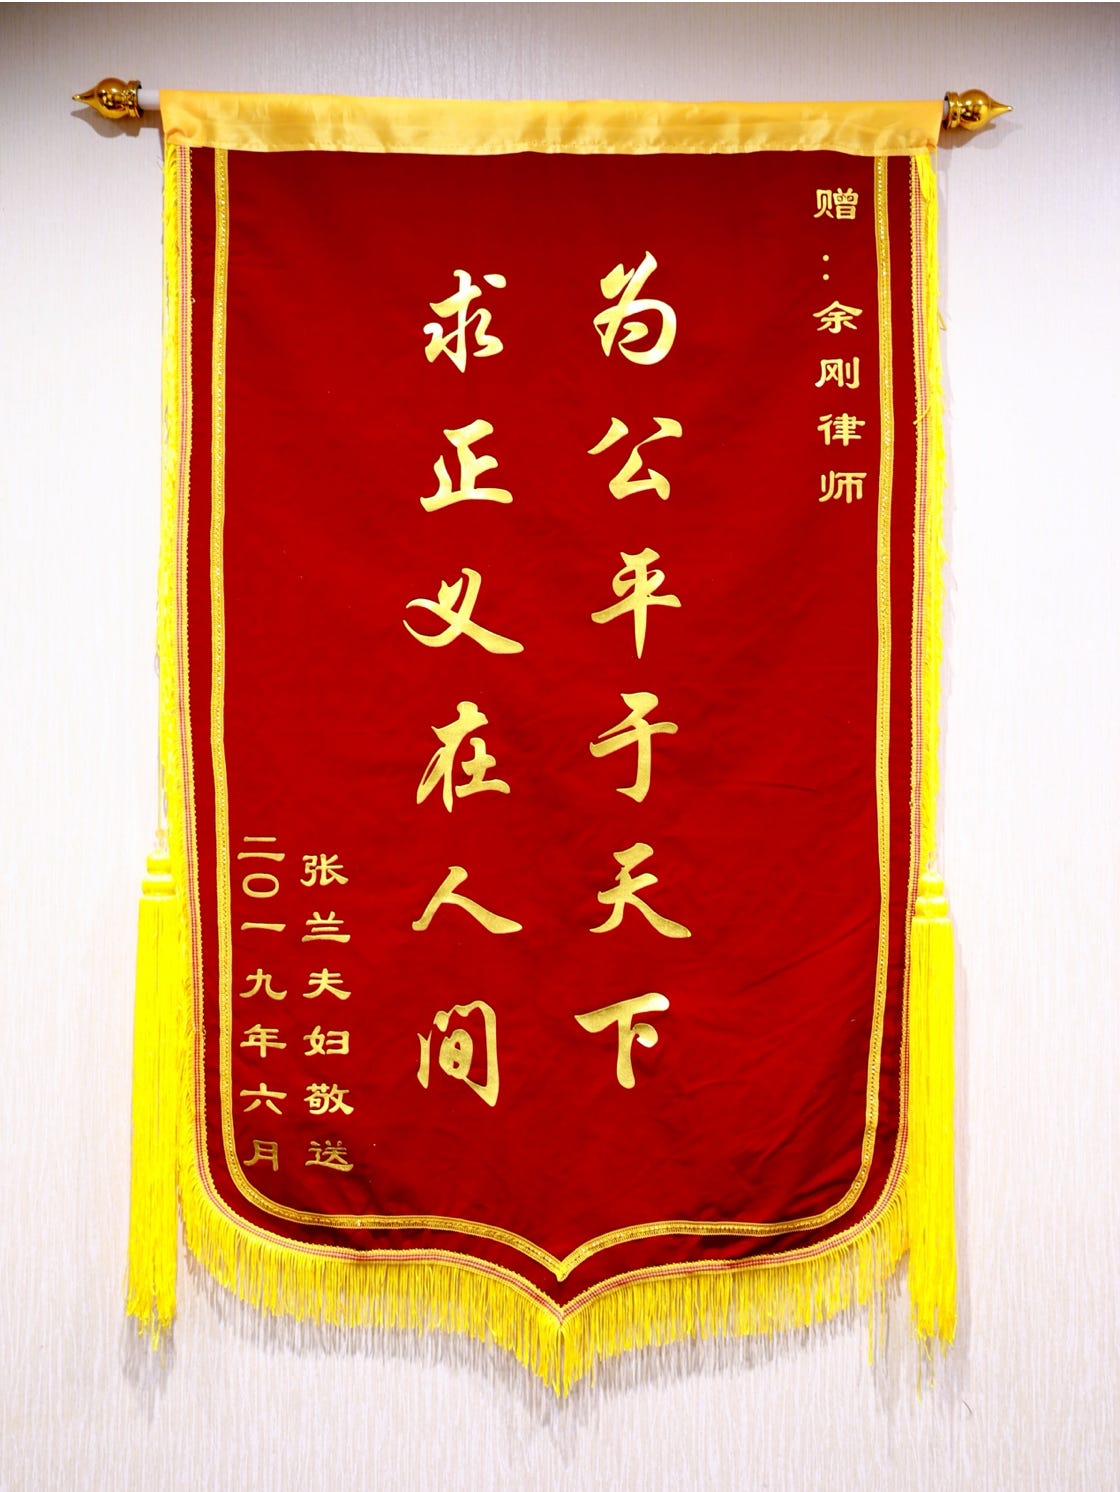 赠：余刚律师
为公平于天下
求正义在人间
张兰夫妇敬送
二〇一九年六月